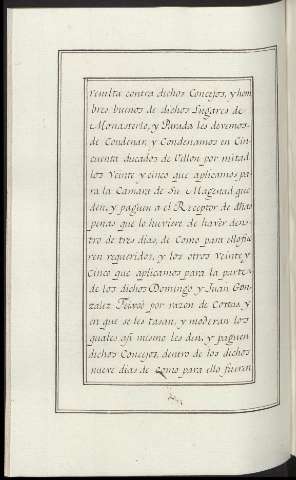 resulta contra dichos Concejos, y hom
bres buenos de dichos Lugares de
Monasterio, y Parada les devemos
de Condenar, y Condenamos en Cin
cuenta ducados de Vellon por mitad
los Veinte y cinco que aplicamos pa
ra la Camara de Su Magestad que
den, y paguen a el Receptor de dhas
penas que lo huviere de haver den
tro de tres dias, de Como para ello fue
ren requeridos, y los otros Veinte y
Cinco que aplicamos para la parte
de los dichos Domingo y Juan Gon
zalez por razon de Costas, y
en que se les tasan, y moderan los
quales asi mismo les den, y paguen
dichos Concejos, dentro de los dichos
nueve dias de como para ello fueren